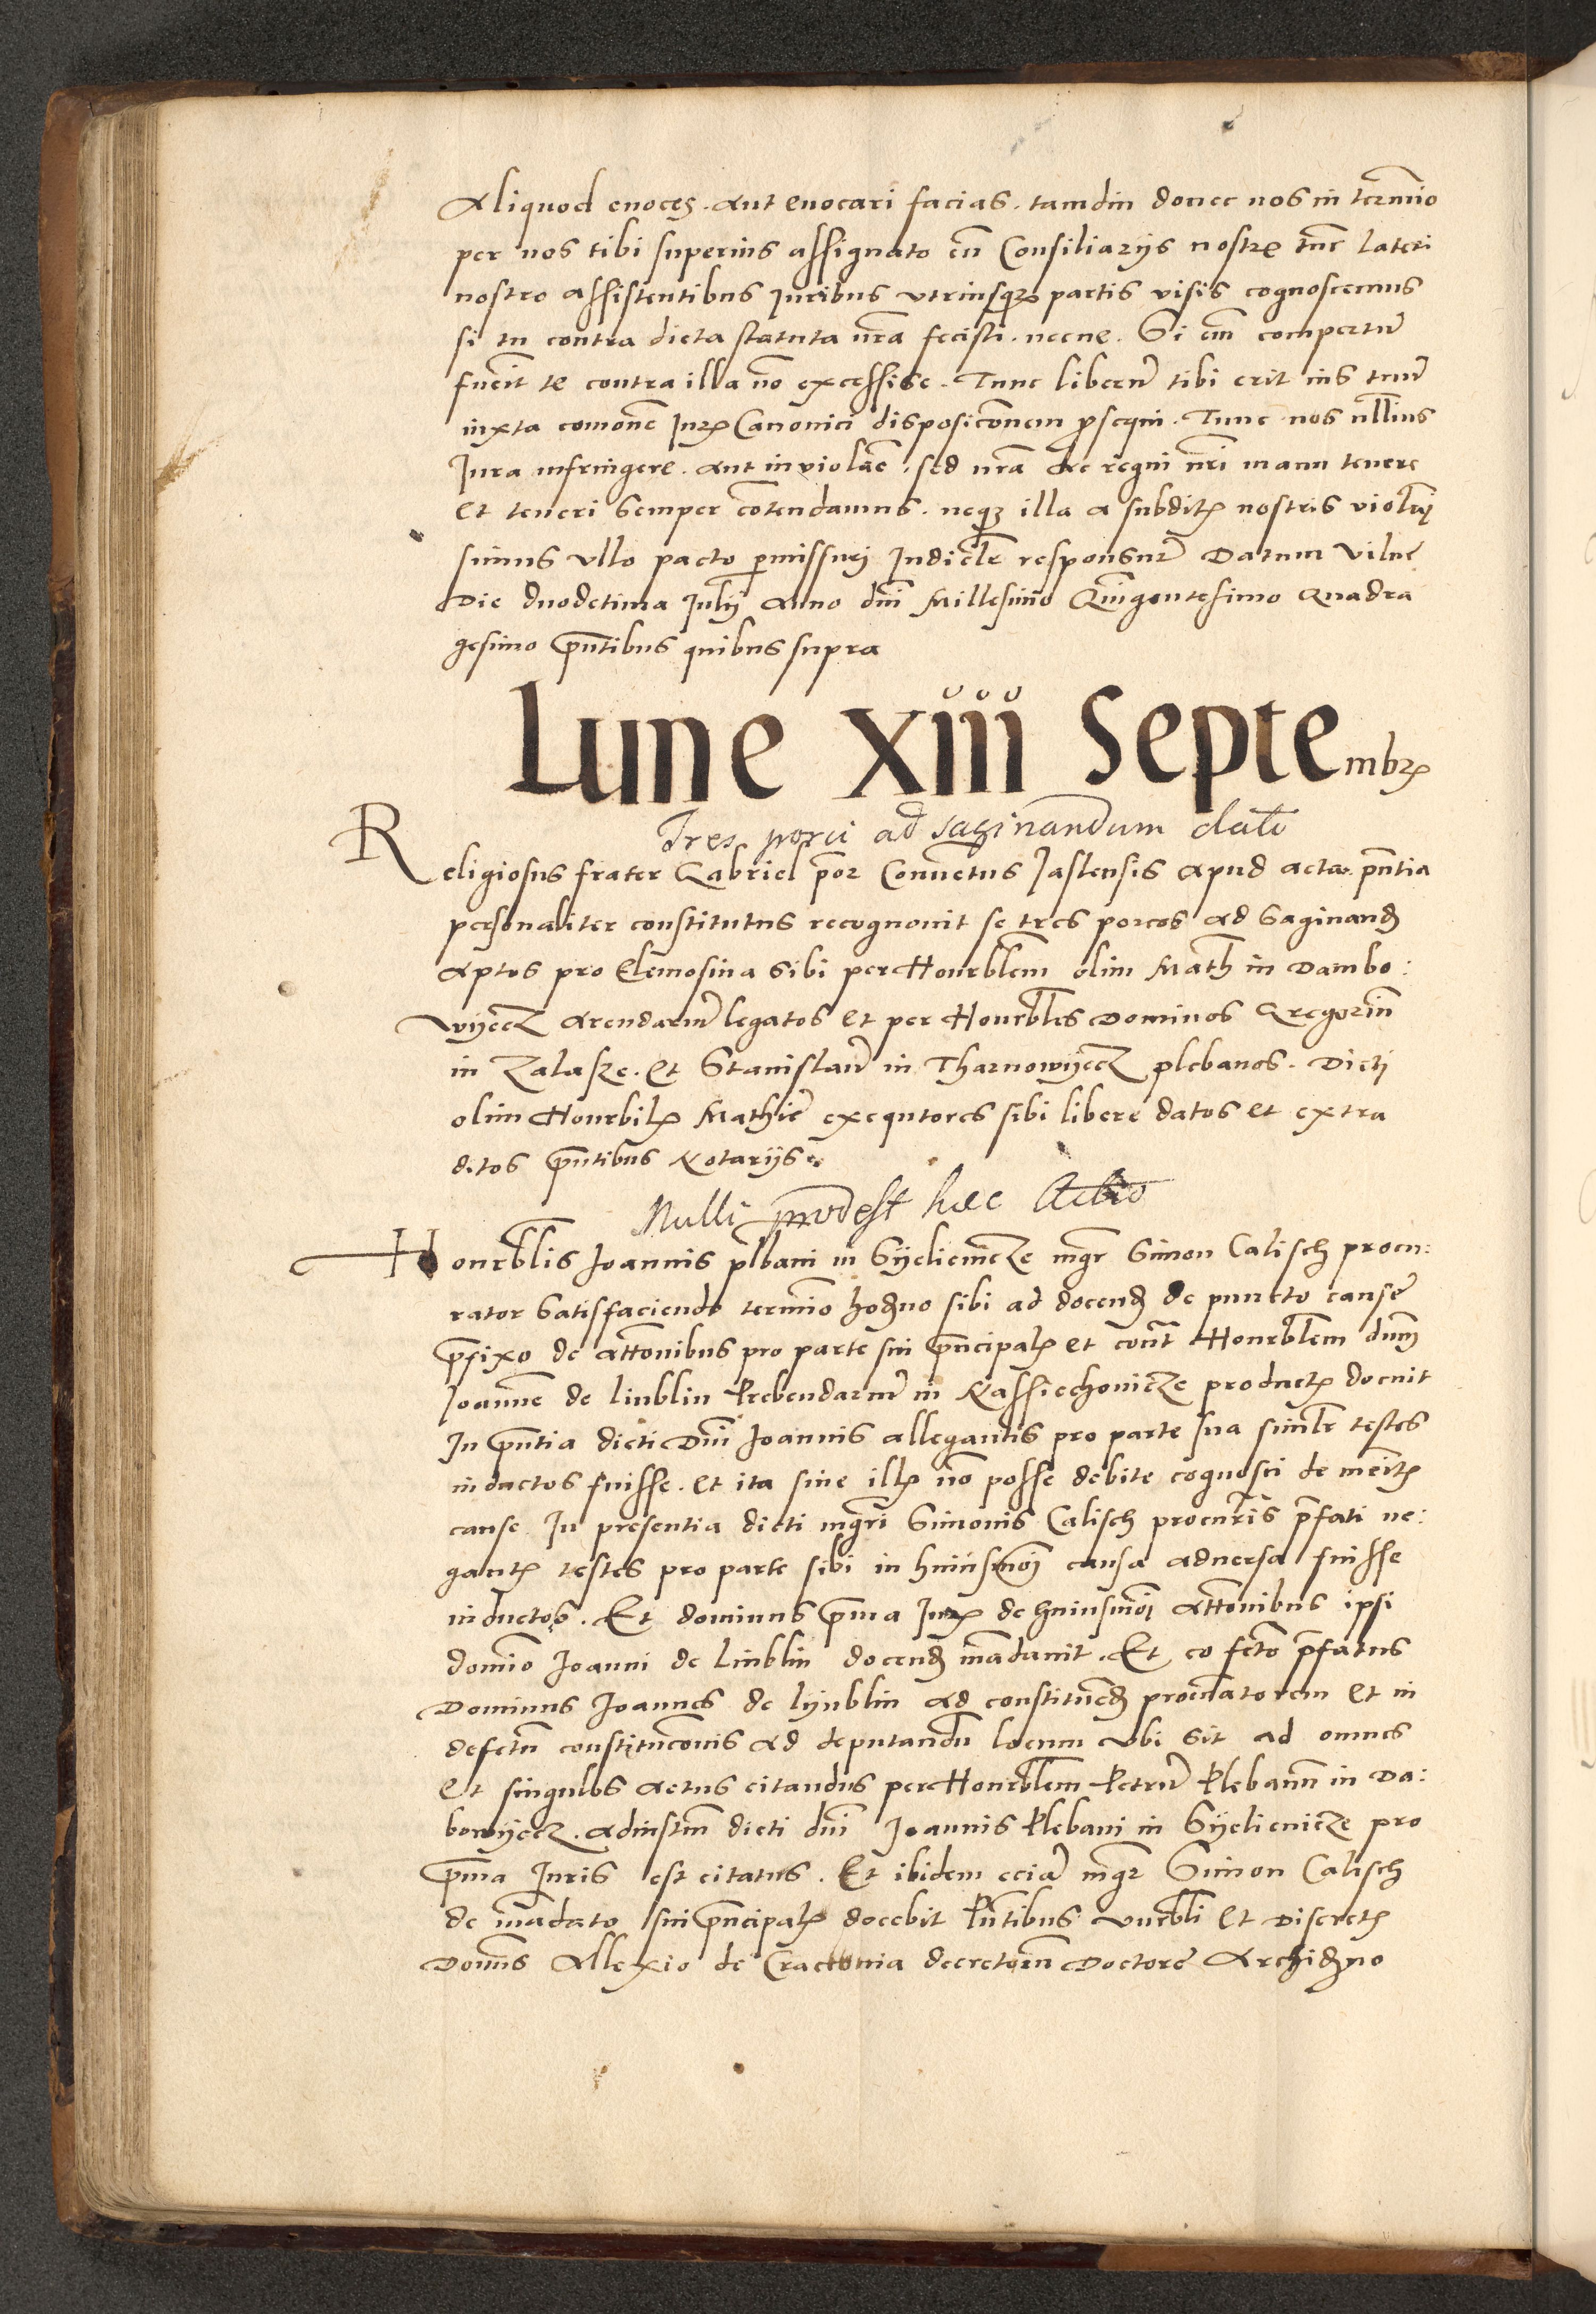 Aliquod evoces. aut evocari facias. tamdiu donec nos in termīo
per nos tibi superius assignato cū Consiliarijs nostrꝭ tūc lateri
nostro assistentibus Juribus utriusqꝫ partis visis cognoscemus
si tu contra dicta statuta nr̄a fecisti. necne. Si em̄ compertū
fuerīt te contra illa nō excessisse. Tunc liberū tibi erit ius tuū
iuxta comōnē Jurꝭ Canonici disposicōnem ꝓsequi. Tunc nos nll̄ius
Jura infringere. aut inviolare. sed nr̄a ac regni nr̄i manu tenere
et teneri semper cōtendamus. neqꝫ illa a subditꝭ nostris violarj
sumus ullo pacto ꝑmissurj Judiclr̄ responsur̄ Datum Vilnę
Die duodecima Julij Anno dn̄i Millesimo Quīgentesimo Quadra
gesimo p̄ntibus quibus supra
Lune xiii Septembrꝭ
Tres porci ad saginandum dati
Religiosus frater Gabriel p̄or Convētus Jaslensis apud acta p̄ntia
personaliter constitutus recognovit se tres porcos ad saginandꝭ
aptos pro Elemosina sibi per Honrbl̄em olim Math in Dambo:
wyecz arendariū legatos et per Honrbl̄es Dominos Gregoriū
in Zalasze. et Stanislaū in Tharnowyecz plebanos. Dictj
olim Honrbilꝭ Mathie exequtores sibi libere datos et extra
ditos p̄ntibus Notarijs
Nulli prodest hæc Actio
Honrbl̄is Joannis pl̄bani in Syeliemcze mgr̄ Simon Calisch procu:
rator satisfaciendo termīo hodꝭno sibi ad docendꝭ de puncto causę
p̄fixo de attōnibus pro parte sui p̄ncipalꝭ et contr̄ Honrbl̄em dnm̄
Joannē de liublin Prebendariū in Nassiechovicze productꝭ docuit
In p̄ntia dicti Dn̄i Joannis allegantis pro parte sua simlr̄ testes
inductos fuisse. et ita sine illꝭ nō posse debite cognosci de merītꝭ
cause In presentia dicti mgr̄i Simonis Calisch procurr̄is p̄fati ne:
gantꝭ testes pro parte sibi in huiusmōj causa adversa fuisse
inductos. Et dominus p̄ma Jurꝭ de huiusmōj attōnibus ipsi
domīo Joanni de liublin docendꝭ mādavit. Et eo fcto p̄fatus
Dominus Joannes de lyublin ad constituēdꝭ procuratorem et in
defectū constitucōnis ad deputandū locum ubi sit ad omnes
et singulos actus citandus per Honrbl̄em Petrū Plebanū in Da:
bowyecz. adinstm̄ dicti dn̄i Joannis Plebani in Syeliemcze pro
p̄ma Juris est citatus. Et ibidem eciā mgr̄ Simon Calisch
de mādato sui p̄ncipalꝭ docebit P̄ntibus Vnrbl̄i et Discretꝭ
Domīs Allexio de Cracovia decretorū Doctore Archidꝭno